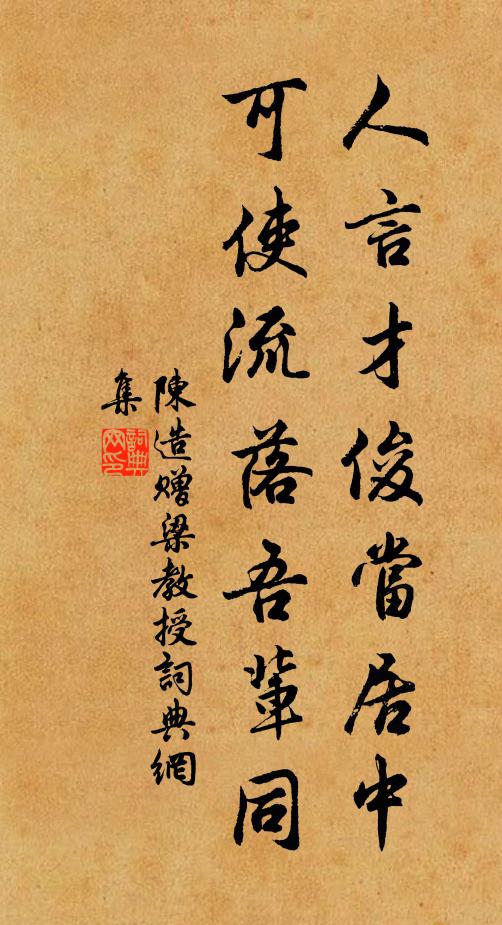 人言才俊當居中
可使流落吾輩同
陳造贈梁教授詞典網
集
詞典
网印